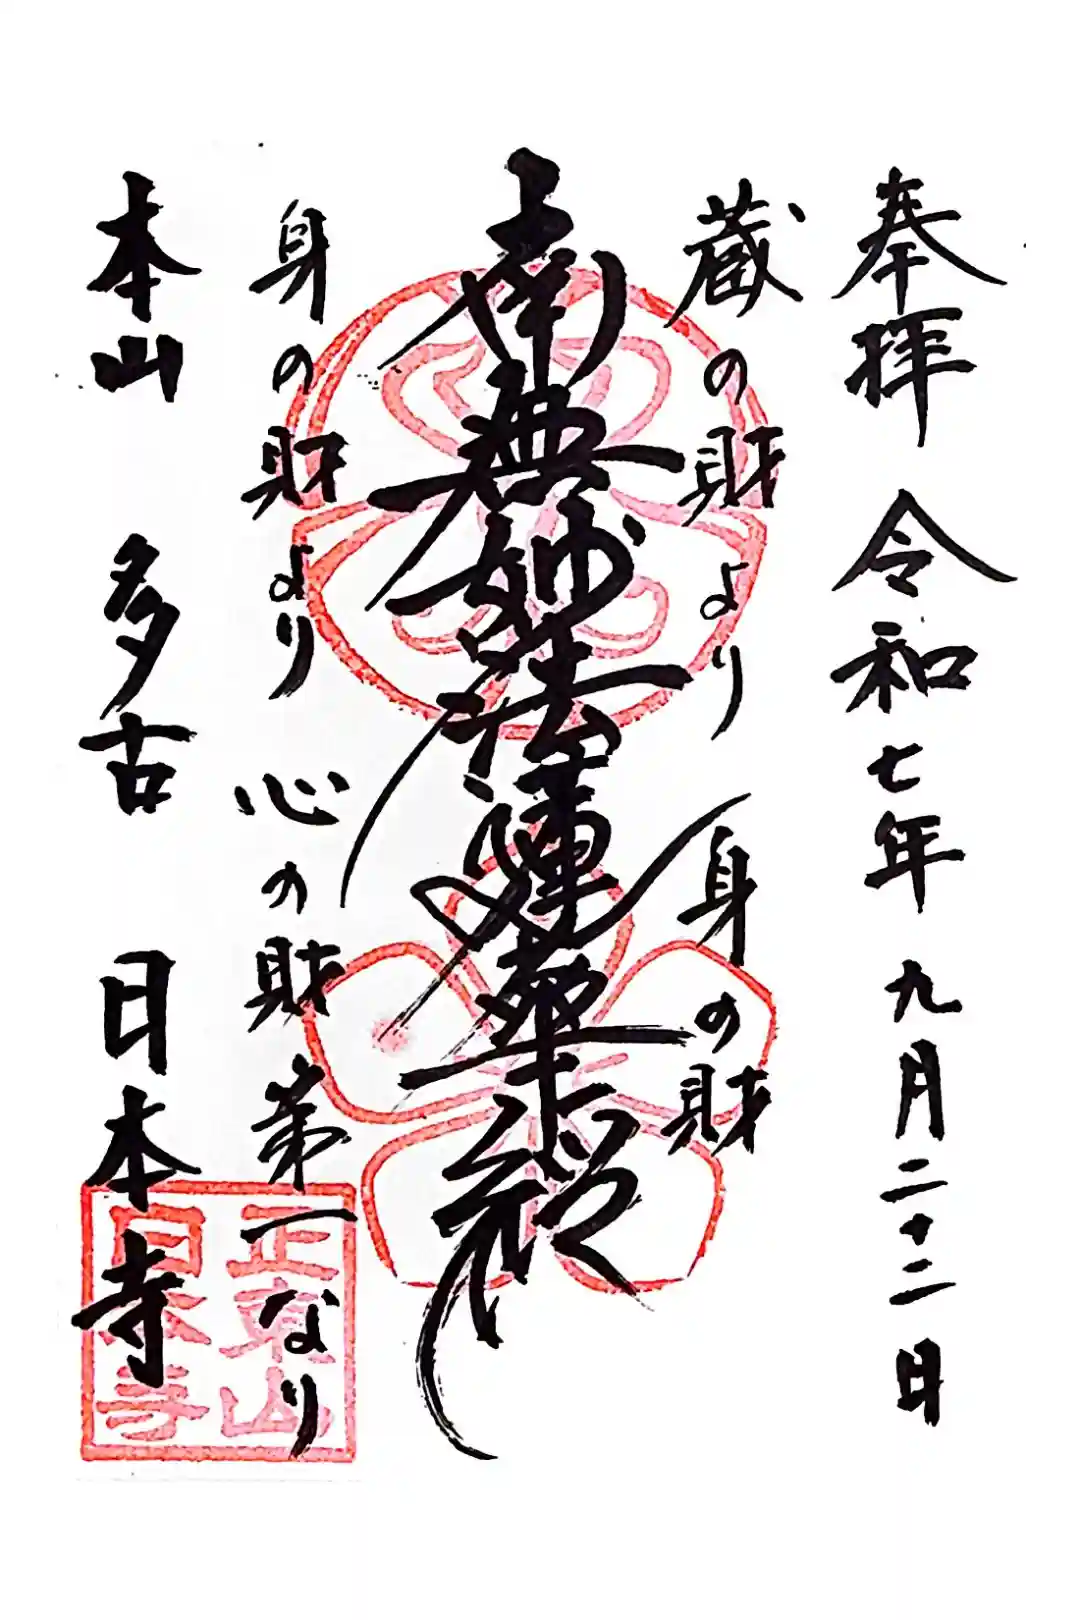 奉拝 令和七年九月二十二日
蔵の財より 身の財
南無妙法蓮華経
身の財より 心の財 第一なり
本山 多古 日本寺
正東山
日本寺